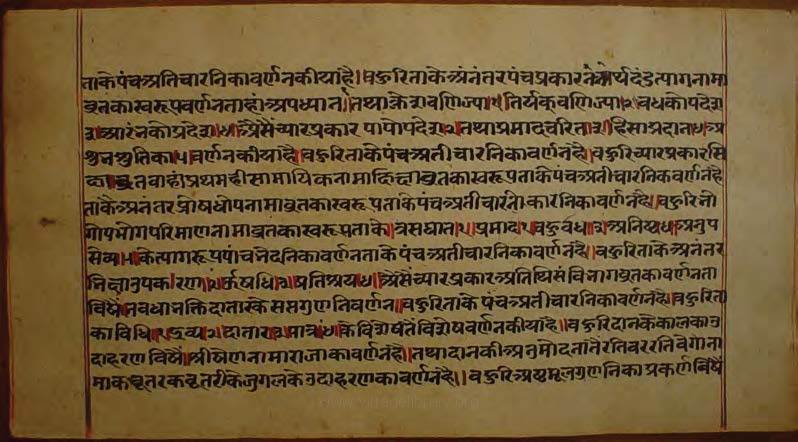 ताके पंच अतिचारनिका वर्णन कीया है। बहुरि ताके अनंतर पंच प्रकार अनर्थदंडत्याग नामा
व्रतका स्वरूप वर्णन ताहां अपध्यान १ तथा क्लेशवणिज्या १ तिर्यक्वणिज्या २ बधकोपदेश
३ आरंभकोप्रदेश ४ असैं च्यार प्रकार पापोपदेश २ तथा प्रमादचरिता ३ हिंसाप्रदान ४ अ
शुभश्रुतिका ५ वर्णन कीया है बहुरि ताके पंच अतीचारनिका वर्णन है। बहुरि च्यार प्रकार सि
क्षाव्रत वाहां प्रथमही सामायिक नामा व्रतका स्वरूप ताके पंच अतीचारनिका वर्णन है
ताके अनंतर प्रोषधोप नामा व्रतका स्वरूप ताके पंच अतीचारनिका वर्णन है। बहुरि भो
गोपभोगपरिमाण नामा व्रतका स्वरूप ताके त्रसघात १ प्रमाद २ बहुवध ३ अनिष्ट ४ अनुप
सेव्य ५ के त्यागरूप पांच भेदनिका वर्णन ताके पंच अतीचारनिका वर्णन है। बहुरि ताके अनंतर
भिक्षा १ उपकरण २ औषधि ३ प्रतिश्रय ४ असैं च्यार प्रकार अतिथिसंविभागव्रतका वर्णन ता
विषैं नवधा भक्ति दातारके सप्त गुण वर्णन। बहुरि ताके पंच अतीचारनिका वर्णन है। बहुरि ता
का विधि १ द्रव्य २ दातार ३ पात्र ४ के विशेषतें विशेष वर्णन कीया है। बहुरि दानके फलका उ
दाहरण विषैं। श्रीषेण नामा राजाका वर्णन है। तथा दानकी अनुमोदनातैं रतिवर रतिवेगा ना
मा कबूतर कबूतरीके जुगलके उदाहरणका वर्णन है। बहुरि अष्टमूलगुणनिका प्रकर्ण विषैं